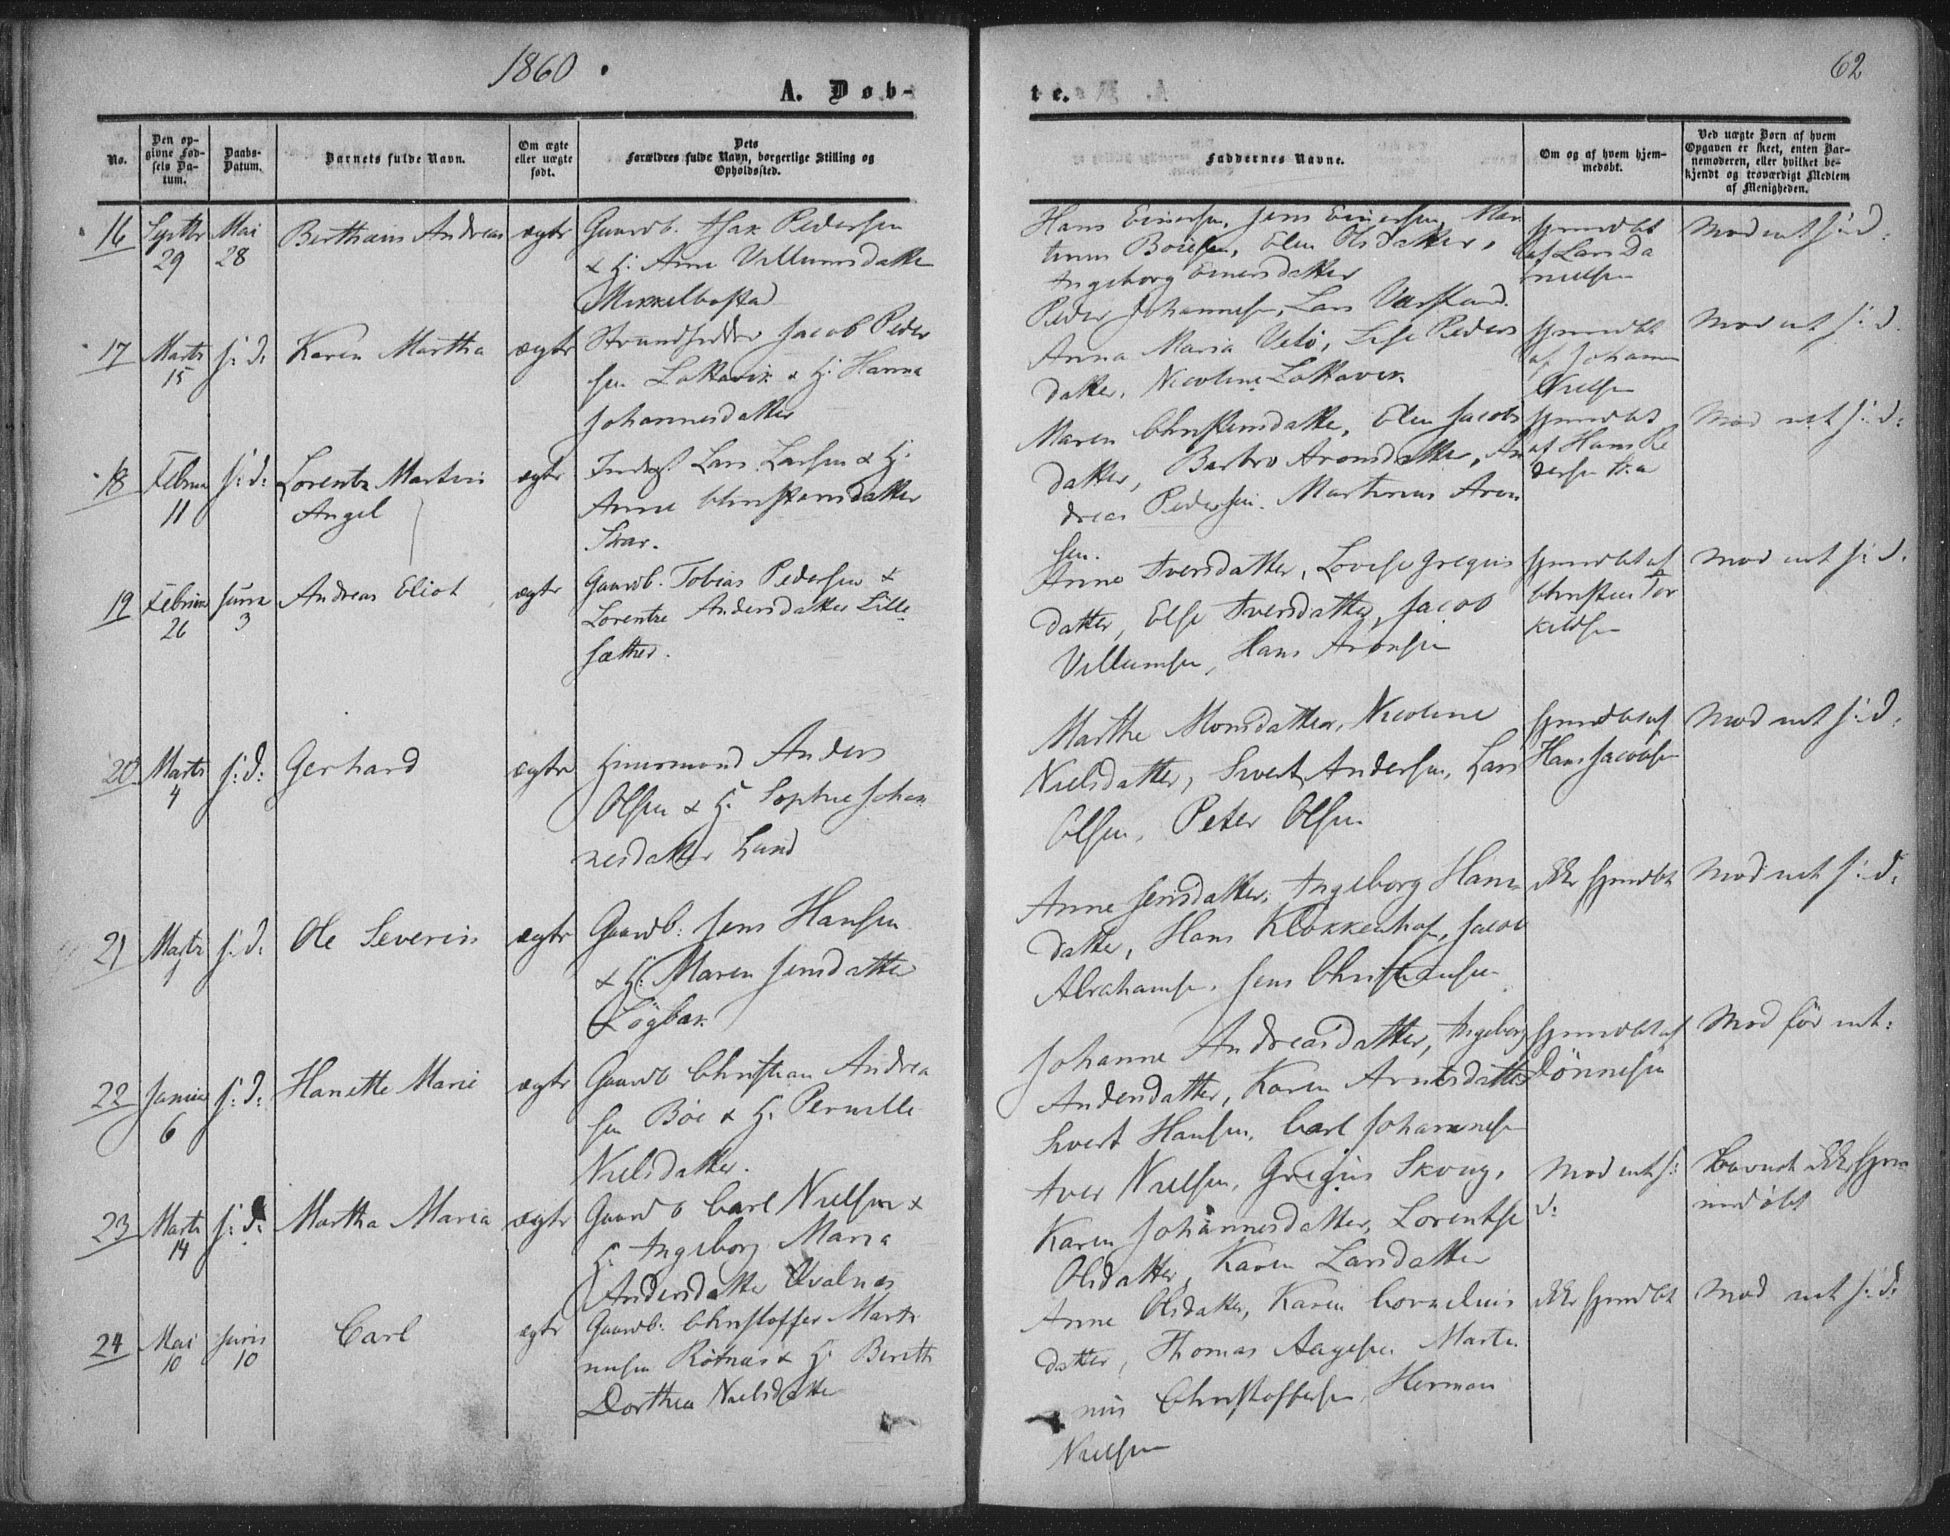 1860.
62
A. Døb-
te.
No.
Den op-
givne Fød-
sels Da-
tum.
Daabs-
Datum.
Barnets fulde Navn.
Om ægte
eller uægte
født.
Dets
Forældres fulde Navn, borgerlige Stilling og
Opholdssted.
Faddernes Navne.
Om og af hvem hjem-
medøbt.
Ved uægte Børn af hvem
Opgaven er skeet, enten Bar-
nemoderen, eller hvilket be-
kjendt og troværdigt Medlem
af Menigheden.
16
Septbr
29
Mai
28
Berthæus Andreas
ægte
Gaardb. Isak Pedersen
& H: Anne Villumsdatter
Mikkelbostad
Hans Einersen, Jens Einersen, Mar
tinus Boiesen, Elen Olsdatter,
Ingeborg Einersdatter
hjemdbt
af Lars Da
nielsen
Mod ut s: d:
17
Marts
15
s: d:
Karen Martha
ægte
Strandsidder Jacob Peder
sen Lakkavik & H: Hanna
Johannesdatter
Peder Johannesen, Lars
Anna Maria Vetø, Lise Peders
datter, Nicoline Lakkavik
hjemdbt
af Johan
Nielsen
Mod ut s: d.
18
Februar
11
s: d:
Lorentz Martin
Angel
ægte
Inderst Lars Larsen & H:
Anne Christensdatter
Skar.
Maren Christensdatter, Elen Jacobs
datter, Barbro Aronsdatter, An
dreas Pedersen. Martinus Aron
sen.
hjemdbt
af Hans Pe
dersen
Mod ut s: d:
19
Februar
26
Juni
3
Andreas Eliot
ægte
Gaardb. Tobias Pedersen &
Lorentze Andersdatter Lille
sæther.
Anne Iversdatter, Lovise Gregus
datter, Else Iversdatter, Jacob
Villumsen, Hans Aronsen
hjemdbt af
Christen Tor
kildsen
Mod ut s: d.
20
Marts
4
s: d:
Gerhard
ægte
Huusmand Anders
Olsen & H: Sophie Johan
nesdatter Lund
Marthe Monsdatter, Nicoline
Nielsdatter, Sivert Andersen, Lars
Olsen, Peter Olsen
hjemdbt af
Hans Jacobsen
Mod ut s: d.
21
Marts
1
s: d:
Ole Severin
ægte
Gaardb: Jens Hansen
& H: Maren Jensdatter
Løgbak
Anne Jensdatter, Ingeborg Hans
datter, Hans Klokkenhof, Jacob
Abrahamsen, Jens Christiansen
ikke hjemdbt
Mod ut s: d.
22
Januar
6
s: d:
Hanette Marie
ægte
Gaardb Christian Andrea
sen Böe & H: Pernille
Nielsdatter.
Johanne Andreasdatter, Ingeborg
Andersdatter, Karen Arntsdatter
Sivert Hansen, Carl Johannesen
hjemdbt af
Dønnesen
Mod før ut:
23
Marts
14
s: d:
Martha Maria
ægte
Gaardb Carl Nielsen &
H: Ingeborg Maria
Andersdatter Hvalnes
Iver Nielsen, Gregus Skoug,
Karen Johannesdatter, Lorentse
Olsdatter, Karen Larsdatter
Mod ut s:
d:
Barnet ikke hjem
medøbt
24
Mai
10
Juni
10
Carl
ægte
Gaardb: Christoffer Marti
nusen Rötnes & H: Berith
Dorthea Nielsdatter
Anne Olsdatter, Karen Cornelius
datter, Thomas Aagesen Marti
nus Christoffersen, Herman
Nielsen
ikke hjemdbt
Mod ut s: d: